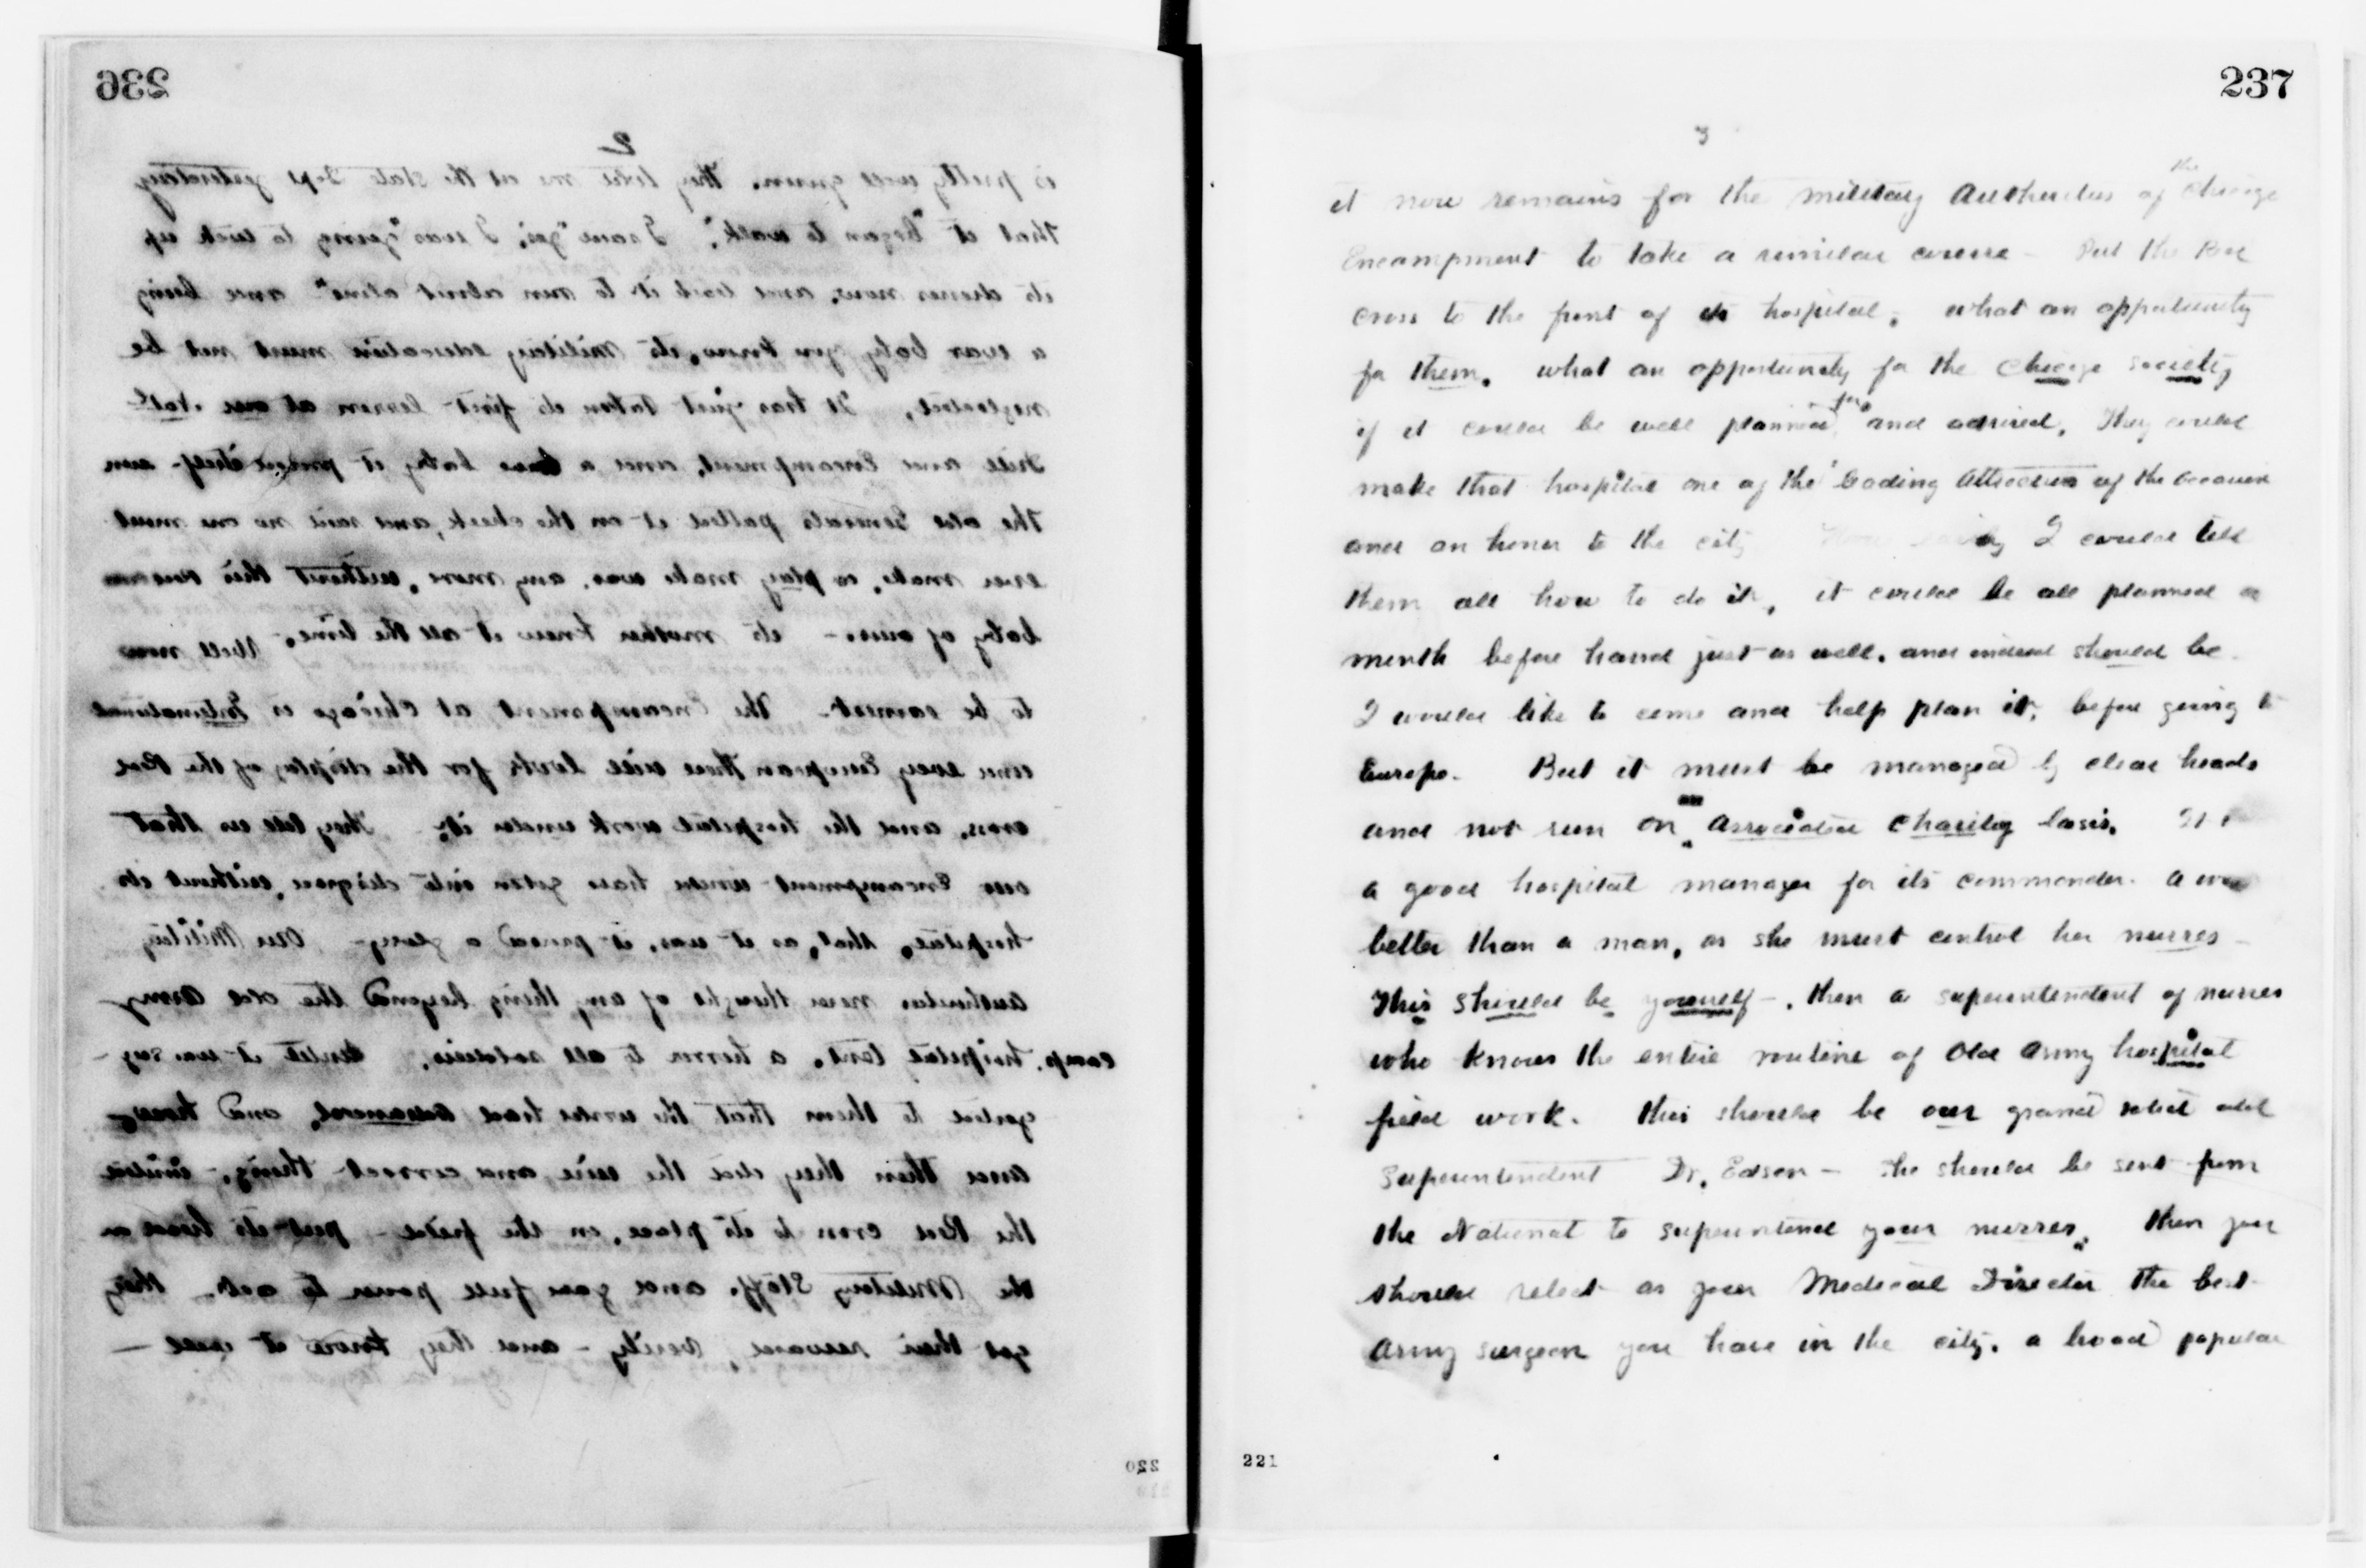 236
2
is pretty well grown. They told me at the State Dept yesterday
that it "began to walk". I said "yes", I was "going to tuck up
its dresses now, and let it to run about alone" and being
a war baby you know, its Military education must not be
neglected. It has just taken its first lesson at our Natl
Drill and Encampment, and a brave baby it proved itself - even
the old Generals patted it on the cheek, and said no one must
ever make, or play make war, any more, without this
baby of ours - its mother knew it all the time. Well now
to be earnest - The Encampment at Chicago is International
and every European there will look for the display of the Red
cross, and the hospital work under it. They tell us that
our Encampment would have gotten into disgrace, without its
hospital, that, as it was, it proved a glory - Our Military
authorities never thought of any thing beyond the old Army
camp. hospital tent, a horror to all soldiers, until it was sug-
gested to them that the world had advanced, and
and then they did the wise and correct thing, - invited
the Red cross to its place, on the field - put its head on
the Military Staff, and gave full power to act. They
got their reward, verily - and they know it well —
220
237
3
it now remains for the military Authorities of the Chicago
Encampment to take a similar course - Put the Red
cross to the front of its hospital, what an opportunity
for them. what an opportunity for the Chicago society
if it could be well planned for and advised. They could
make that hospital one of the leading Attractions of the occasion
and an honor to the city I could tell
them all how to do it, it could be all planned a
month before hand just as well, and indeed should be
I would like to come and help plan it, before going to
Europe. But it must be managed by clear heads
and not run on an Associated Charity basis. It
a good hospital manager for its commander. a
better than a man, as she must control her nurses -
This should be yourself -. then a superintendent of nurses
who knows the entire routine of Old Army hospital
field work. this should be our grand old
Superintendent Dr. Edson - She should be sent from
the National to superintend your nurses, then you
should select as your Medical Director the best
Army surgeon you have in the city, a broad popular
221